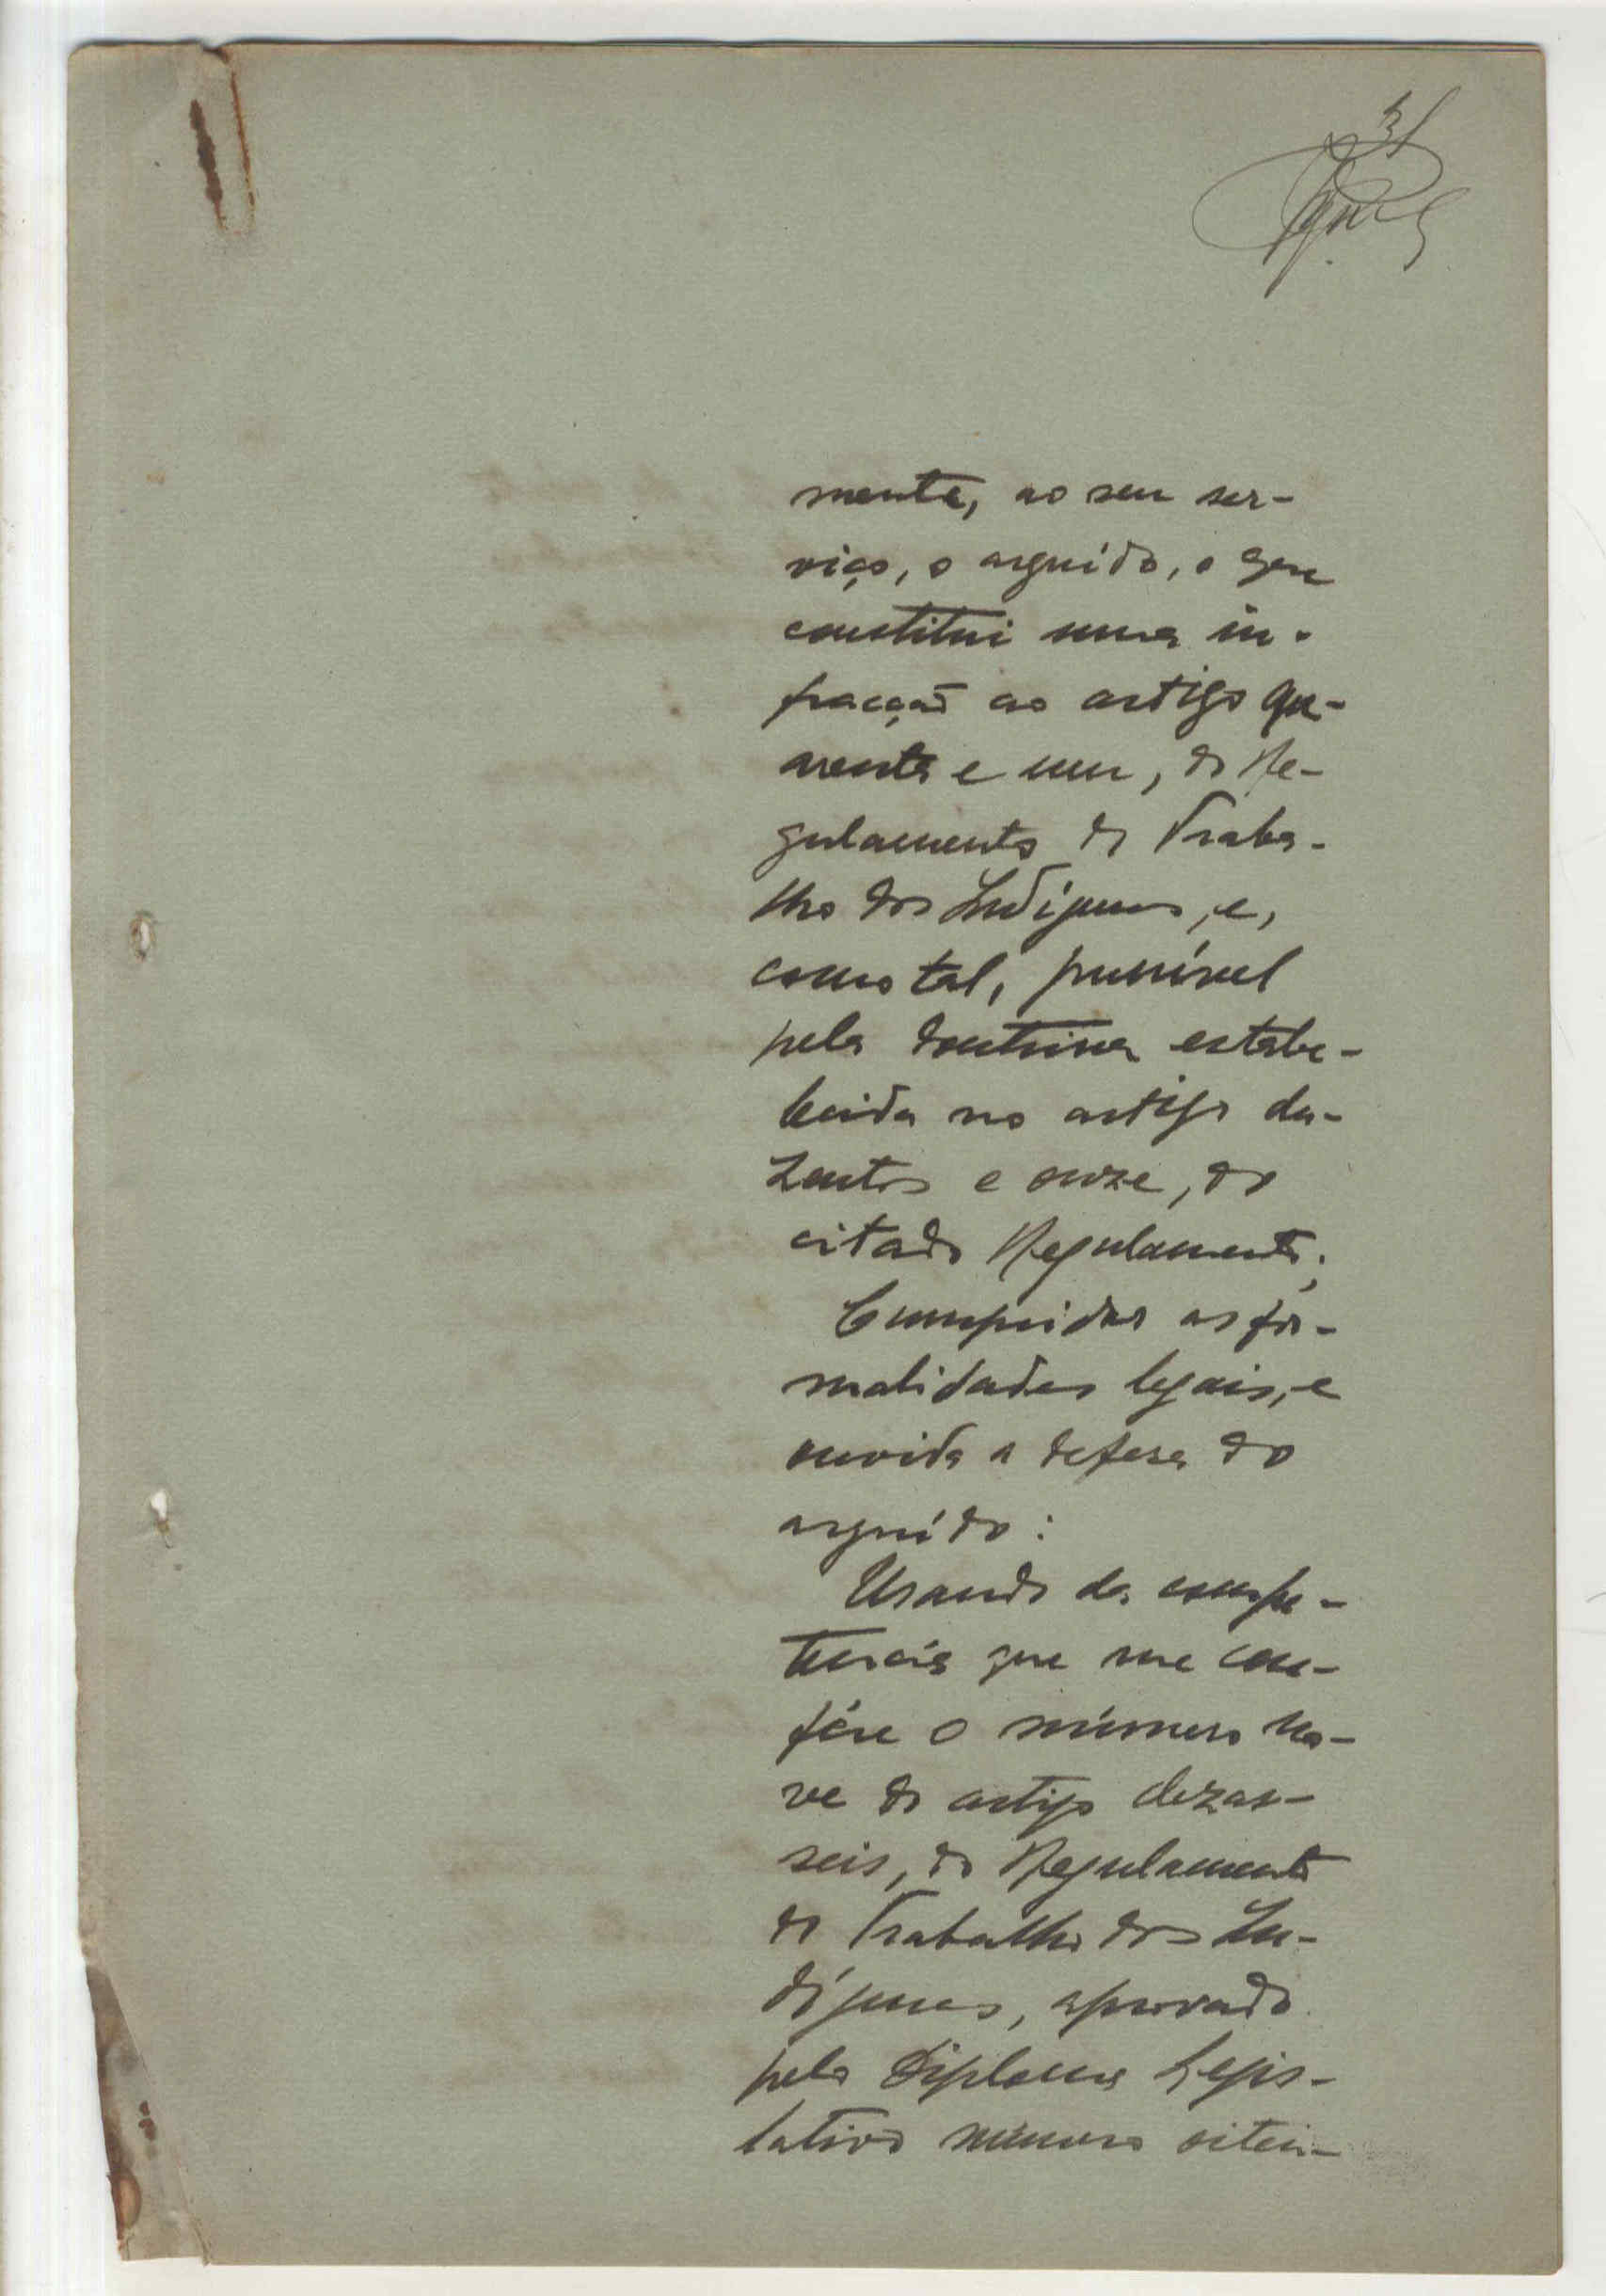 31
mente, ao seu ser-
viço, o arguido, o que
constitui uma in-
fracção ao artigo qu-
arenta e um, do Re-
gulamento do Traba-
lho dos Indígenas, e,
como tal, punível
pela doutrina estabe-
lecida no artigo du-
zentos e onze, do
citado Regulamento;
Cumpridas as for-
malidades legais, e
ouvida a defesa do
arguido:
Usando da compe-
tencia que me con-
fére o número no-
ve do artigo dezas-
seis, do Regulamento
do Trabalho dos In-
dígenas, aprovado
pelo Diploma Legis-
lativo número oiten-